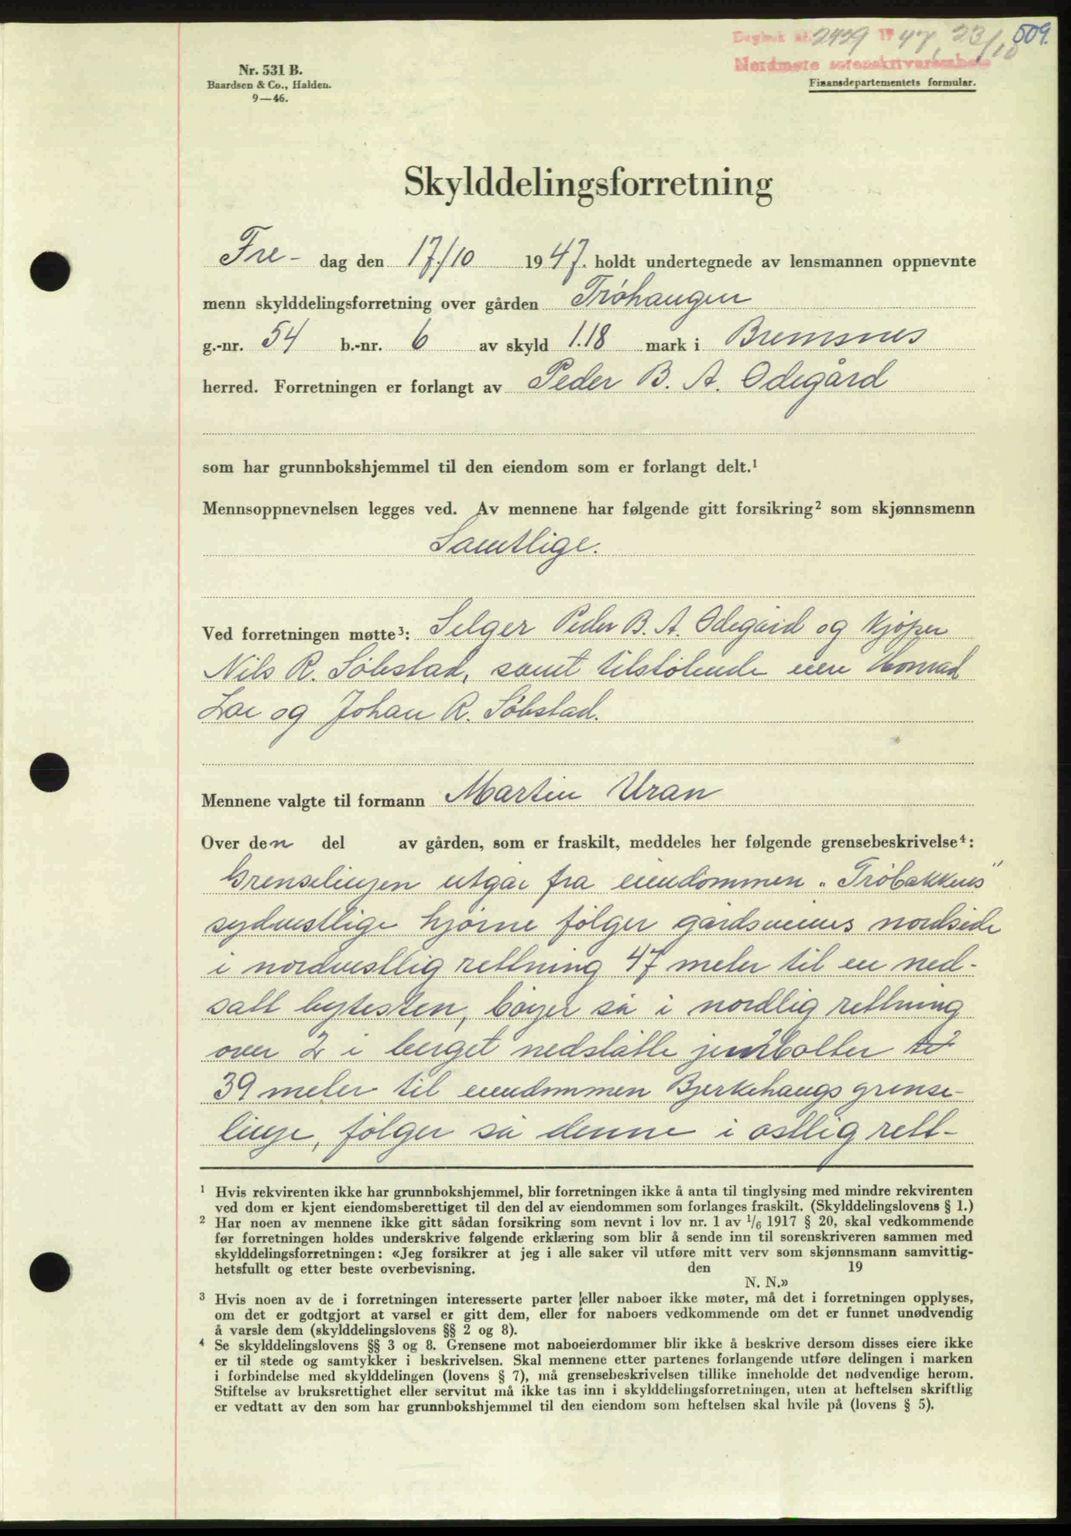 Dagbok nr. 2429 19 47, 23/10 509.
Nordmøre sorenskriverembete
Nr. 531 B.
Baardsen & Co., Halden.
9—46.
Finansdepartementets formular.
Skylddelingsforretning
Fre- dag den 17/10 1947. holdt undertegnede av lensmannen oppnevnte
menn skylddelingsforretning over gården Trøhaugen
g.-nr. 54 b.-nr. 6 av skyld 1.18 mark i Bremsnes
herred. Forretningen er forlangt av Peder B. A. Ødegård
som har grunnbokshjemmel til den eiendom som er forlangt delt.¹
Mennsoppnevnelsen legges ved. Av mennene har følgende gitt forsikring² som skjønnsmenn
Samtlige.
Ved forretningen møtte³: Selger Peder B. A. Ødegård og kjøper
Nils R. Søbstad, samt tilstøtende eier Konrad
Loe og Johan R. Søbstad.
Mennene valgte til formann Martin Uran
Over den del av gården, som er fraskilt, meddeles her følgende grensebeskrivelse⁴:
Grenselinjen utgår fra eiendommen „Trøbakkens"
sydvestlige hjørne følger gårdsveiens nordside
i nordvestlig rettning 47 meter til en ned-
satt bytesten, bøyer så i nordlig rettning
over 2 i berget nedslåtte jernbolter
39 meter til eiendommen Bjerkehaugs grense-
linje, følger så denne i østlig rett-
¹ Hvis rekvirenten ikke har grunnbokshjemmel, blir forretningen ikke å anta til tinglysing med mindre rekvirenten
ved dom er kjent eiendomsberettiget til den del av eiendommen som forlanges fraskilt. (Skylddelingslovens § 1.)
² Har noen av mennene ikke gitt sådan forsikring som nevnt i lov nr. 1 av 1/6 1917 § 20, skal vedkommende
før forretningen holdes underskrive følgende erklæring som blir å sende inn til sorenskriveren sammen med
skylddelingsforretningen: «Jeg forsikrer at jeg i alle saker vil utføre mitt verv som skjønnsmann samvittig-
hetsfullt og etter beste overbevisning. den 19
N. N.»
³ Hvis noen av de i forretningen interesserte parter eller naboer ikke møter, må det i forretningen opplyses,
om det er godtgjort at varsel er gitt dem, eller for naboers vedkommende om det er funnet unødvendig
å varsle dem (skylddelingslovens §§ 2 og 8).
⁴ Se skylddelingslovens §§ 3 og 8. Grensene mot naboeierdommer blir ikke å beskrive dersom disses eiere ikke
er til stede og samtykker i beskrivelsen. Skal mennene etter partenes forlangende utføre delingen i marken
i forbindelse med skylddelingen (lovens § 7), må grensebeskrivelsen tillike inneholde det nødvendige herom.
Stiftelse av bruksrettighet eller servitut må ikke tas inn i skylddelingsforretningen, uten at heftelsen skriftlig
er vedtatt av den som har grunnbokshjemmel til den eiendom som heftelsen skal hvile på (lovens § 5).